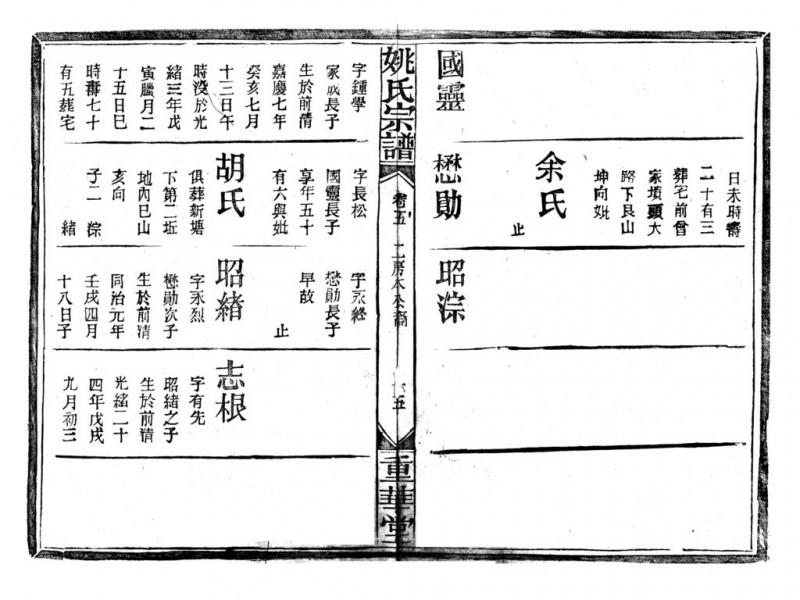 國靈
日未時壽
二十有三
葬宅前曾
家墳頭大
路下艮山
坤向妣
余氏
止
懋勛
昭淙
姚氏宗譜
卷五
二房本公裔
五
重華堂
字鍾學
家成長子
生於前清
嘉慶七年
癸亥七月
十三日午
時沒於光
緒三年戊
寅臘月二
十五日巳
時壽七十
有五葬宅
字長松
國靈長子
享年五十
有六與妣
胡氏
俱葬新塘
下第二坵
地內巳山
亥向
子二 淙
緒
字永經
懋勛長子
早故
止
昭緒
字永烈
懋勛次子
生於前清
同治元年
壬戌四月
十八日子
志根
字有先
昭緒之子
生於前清
光緒二十
四年戊戌
九月初三